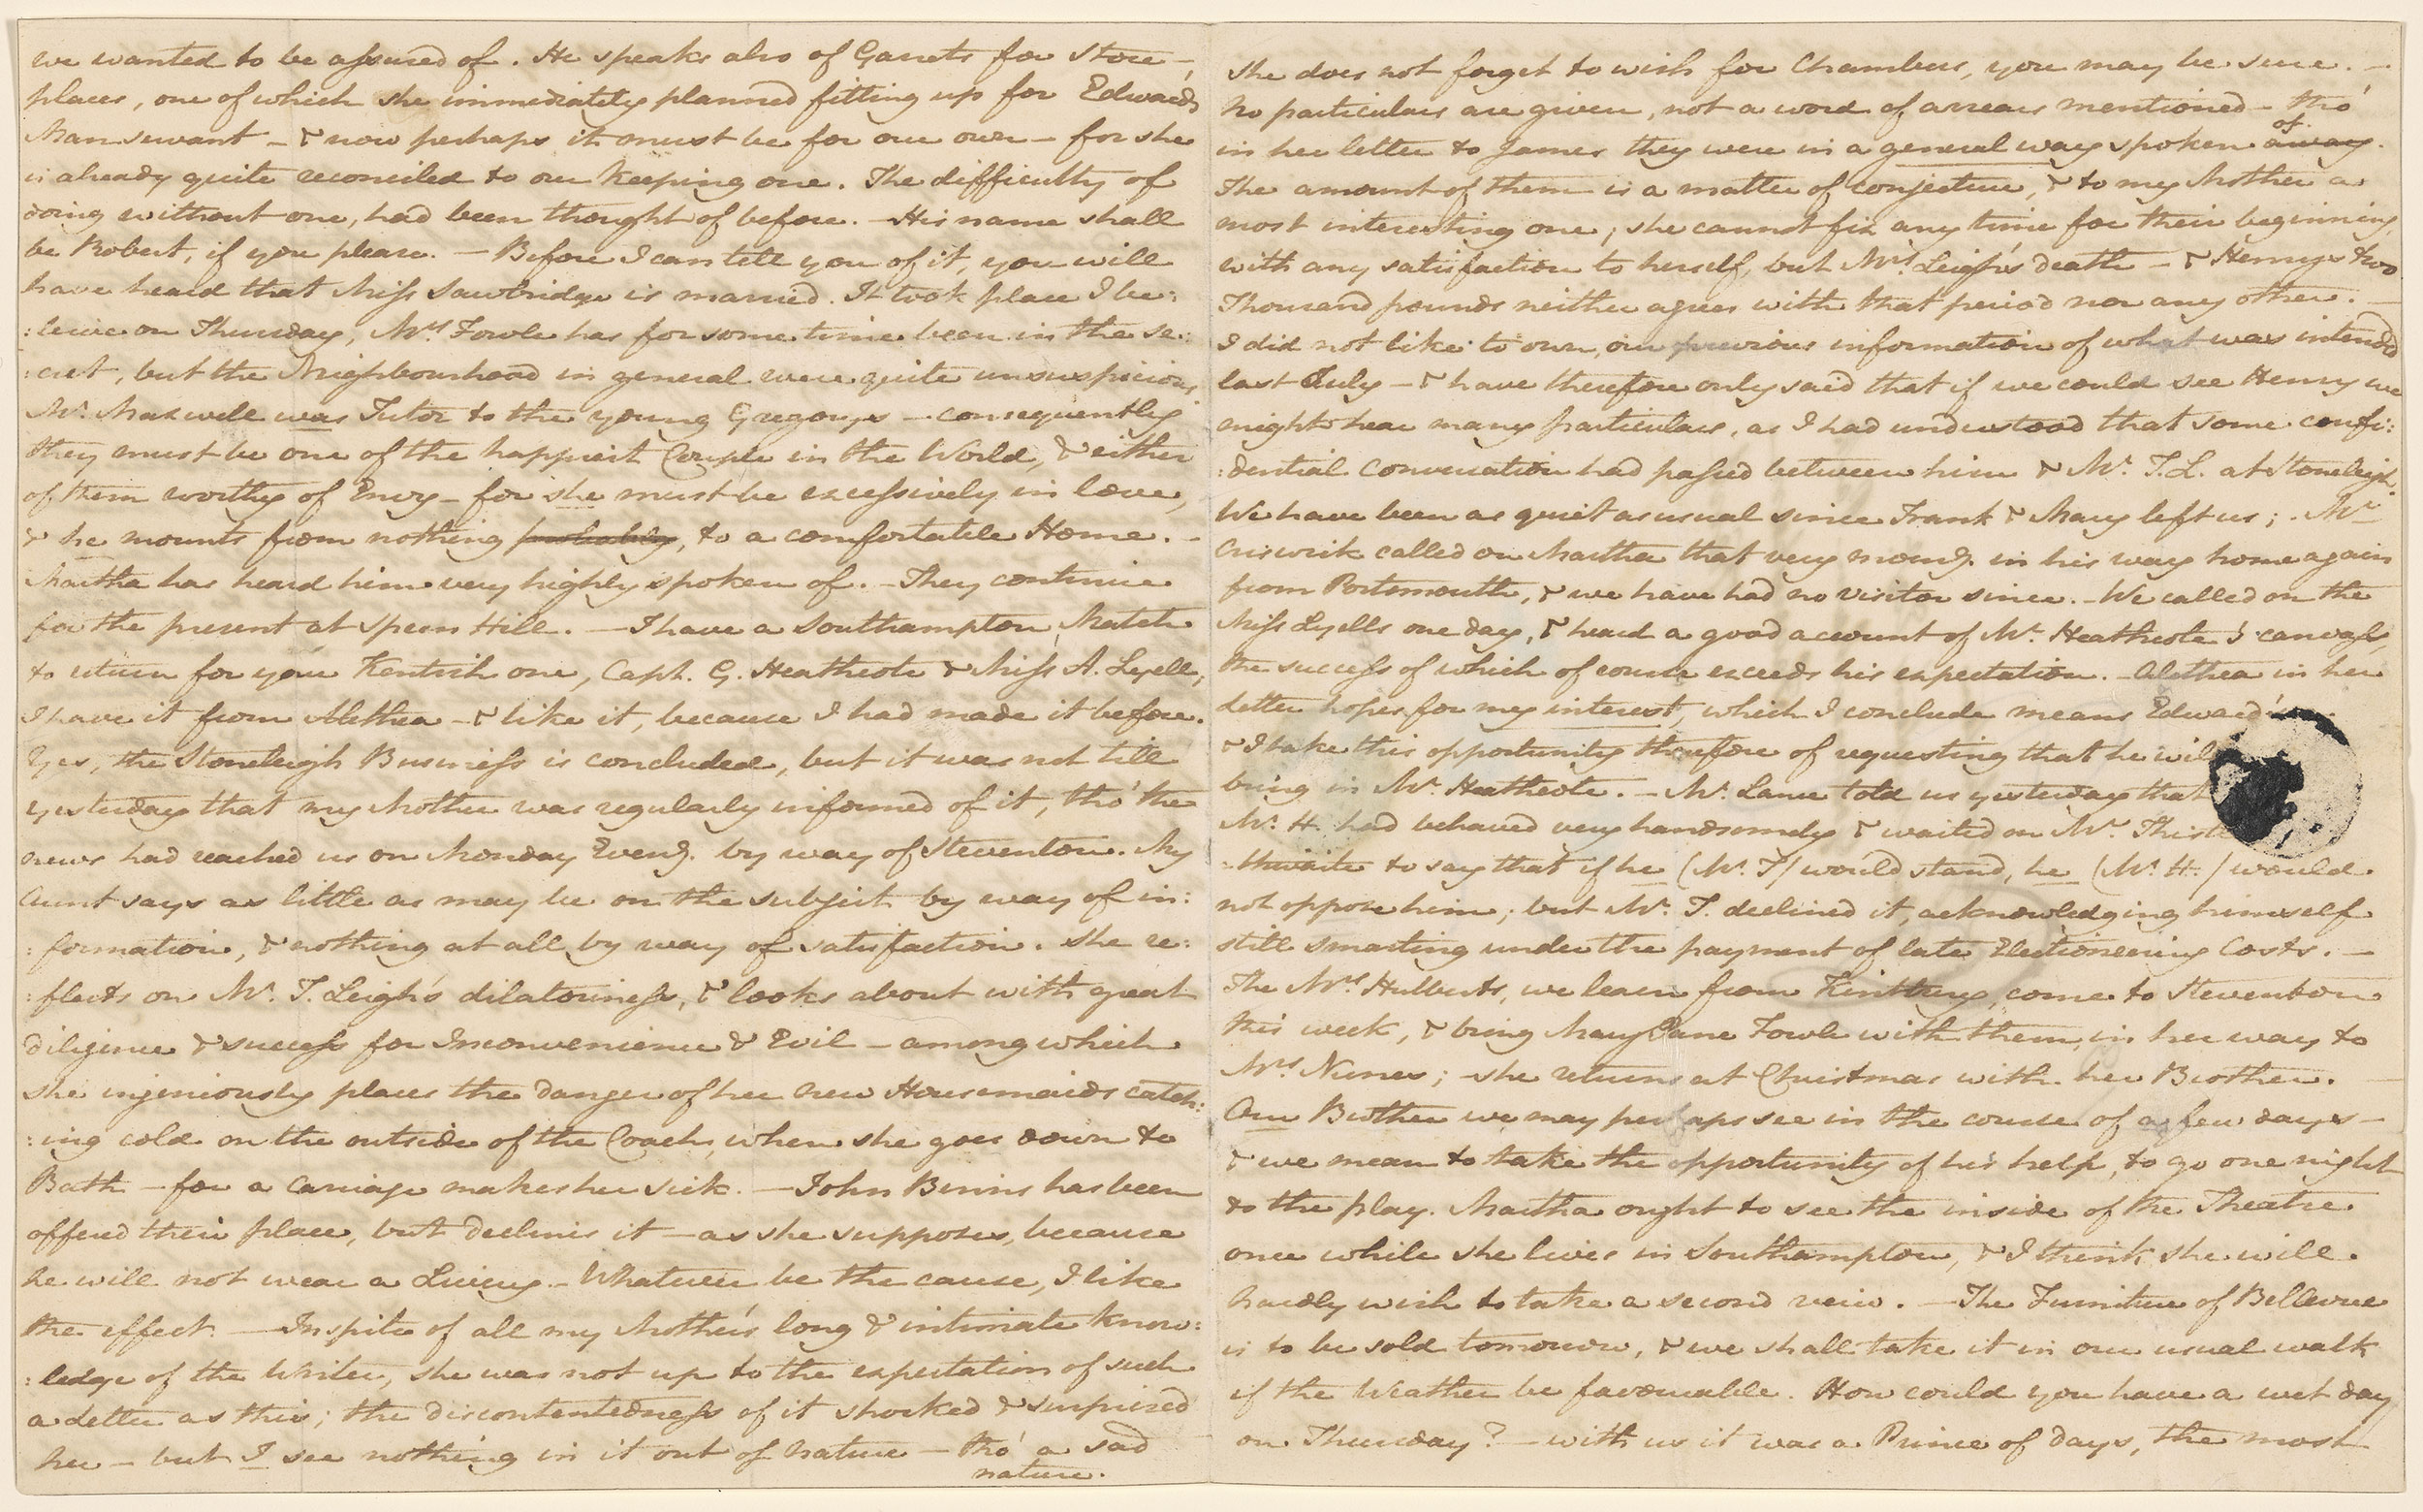 we wanted to be assured of. He speaks also of Garrets for store-
places, one of which she immediately planned fitting up for Edward's
Manservant - & now perhaps it must be for our own - for she
is already quite reconciled to our keeping one. The difficulty of
doing without one, had been thought of before. - His name shall
be Robert, if you please. - Before I can tell you of it, you will
have heard that Miss Sawbridge is married. It took place I be:
:leive on Thursday, Mrs. Fowle has for some time been in the se:
:cret, but the Neighbourhood in general were quite unsuspicious.
Mr. Maxwell was Tutor to the young Gregorys - consequently
they must be one of the happiest Couple in the World, & either
of them worthy of Envy - for she must be excessively in love,
& he mounts from nothing probably, to a comfortable Home. -
Martha has heard him very highly spoken of. - They continue
for the present at Speen Hill. - I have a Southampton Match
to return for your Kentish one, Capt. G. Heathcote & Miss A. Lyell;
I have it from Alethea - & like it, because I had made it before.
Yes, the Stoneleigh Business is concluded, but it was not till
yesterday that my Mother was regularly informed of it, tho' the
news had reached us on Monday Eveng. by way of Steventon. My
Aunt says as little as may be on the subject by way of in:
:formation, & nothing at all by way of satisfaction. She re:
:flects on Mr. T. Leigh's dilatoriness, & looks about with great
diligence & success for Inconvenience & Evil - among which
she ingeniously places the danger of her new Housemaids catch:
:ing cold on the outside of the Coach, when she goes down to
Bath - for a carriage makes her sick. - John Binns has been
offered their place, but declines it - as she supposes, because
he will not wear a Livery. - Whatever be the cause, I like
the effect. - Inspite of all my Mother's long & intimate know:
:ledge of the Writer, she was not up to the expectation of such
a Letter as this; the discontentedness of it shocked & surprised
her - but I see nothing in it out of Nature - tho' a sad
nature.
She does not forget to wish for Chambers, you may be sure. -
No particulars are given, not a word of arrears mentioned - tho'
of
in her letter to James they were in a general way spoken away.
The amount of them is a matter of conjecture, & to my Mother a
most interesting one; she cannot fix any time for their beginning,
with any satisfaction to herself, but Mrs. Leigh's death - & Henry's two
Thousand pounds neither agrees with that period nor any other. -
I did not like to own, our previous information of what was intended
last July - & have therefore only said that if we could see Henry we
might hear many particulars, as I had understood that some confi:
:dential conversation had passed between him & Mr. T.L. at Stoneleigh.
We have been as quiet as usual since Frank & Mary left us; - Mr.
Criswick called on Martha that very morng. in his way home again
from Portsmouth, & we have had no visitor since. - We called on the
Miss Lyells one day, & heard a good account of Mr. Heathcote's canvass,
the success of which of course exceeds his expectation. - Alethea in her
Letter hopes for my interest, which I conclude means Edward's
& I take this opportunity therefore of requesting that he will
bring in Mr. Heathcote. - Mr. Lance told us yesterday that
Mr. H. had behaved very handsomely & waited on Mr. Thistle
:thwaite to say that if he (Mr. T) would stand, he (Mr. H.) would
not oppose him; but Mr. T. declined it, acknowledging himself
still smarting under the payment of late Electioneering Costs. -
The Mrs. Hulberts, we learn from Kintbury, come to Steventon
this week, & bring Mary Jane Fowle with them, in her way to
Mrs. Nunes; - she returns at Christmas with her Brother. -
Our Brother we may perhaps see in the course of a few days -
& we mean to take the opportunity of his help, to go one night
to the play. Martha ought to see the inside of the Theatre
once while she lives in Southampton, & I think she will
hardly wish to take a second veiw. - The Furniture of Bellevue
is to be sold tomorrow, & we shall take it in our usual walk
if the Weather be favourable. How could you have a wet day
on Thursday? - with us it was a Prince of days, the most